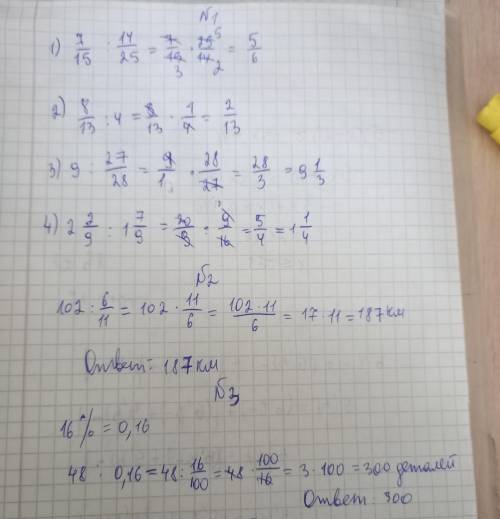 №1
1) 7/15 : 14/25 = 7/15 3 · 25 5/14 2 = 5/6
2) 8/13 : 4 = 8/13 · 1/4 = 2/13
3) 9 : 27/28 = 9/1 · 28/27 = 28/3 = 9 1/3
4) 2 2/9 : 1 7/9 = 20/9 · 9/16 = 5/4 = 1 1/4
№2
102 : 6/11 = 102 · 11/6 = 102·11/6 = 17·11 = 187 км
Ответ: 187 км
№3
16% = 0,16
48 : 0,16 = 48 : 16/100 = 48 · 100/16 = 3·100 = 300 деталей
Ответ: 300